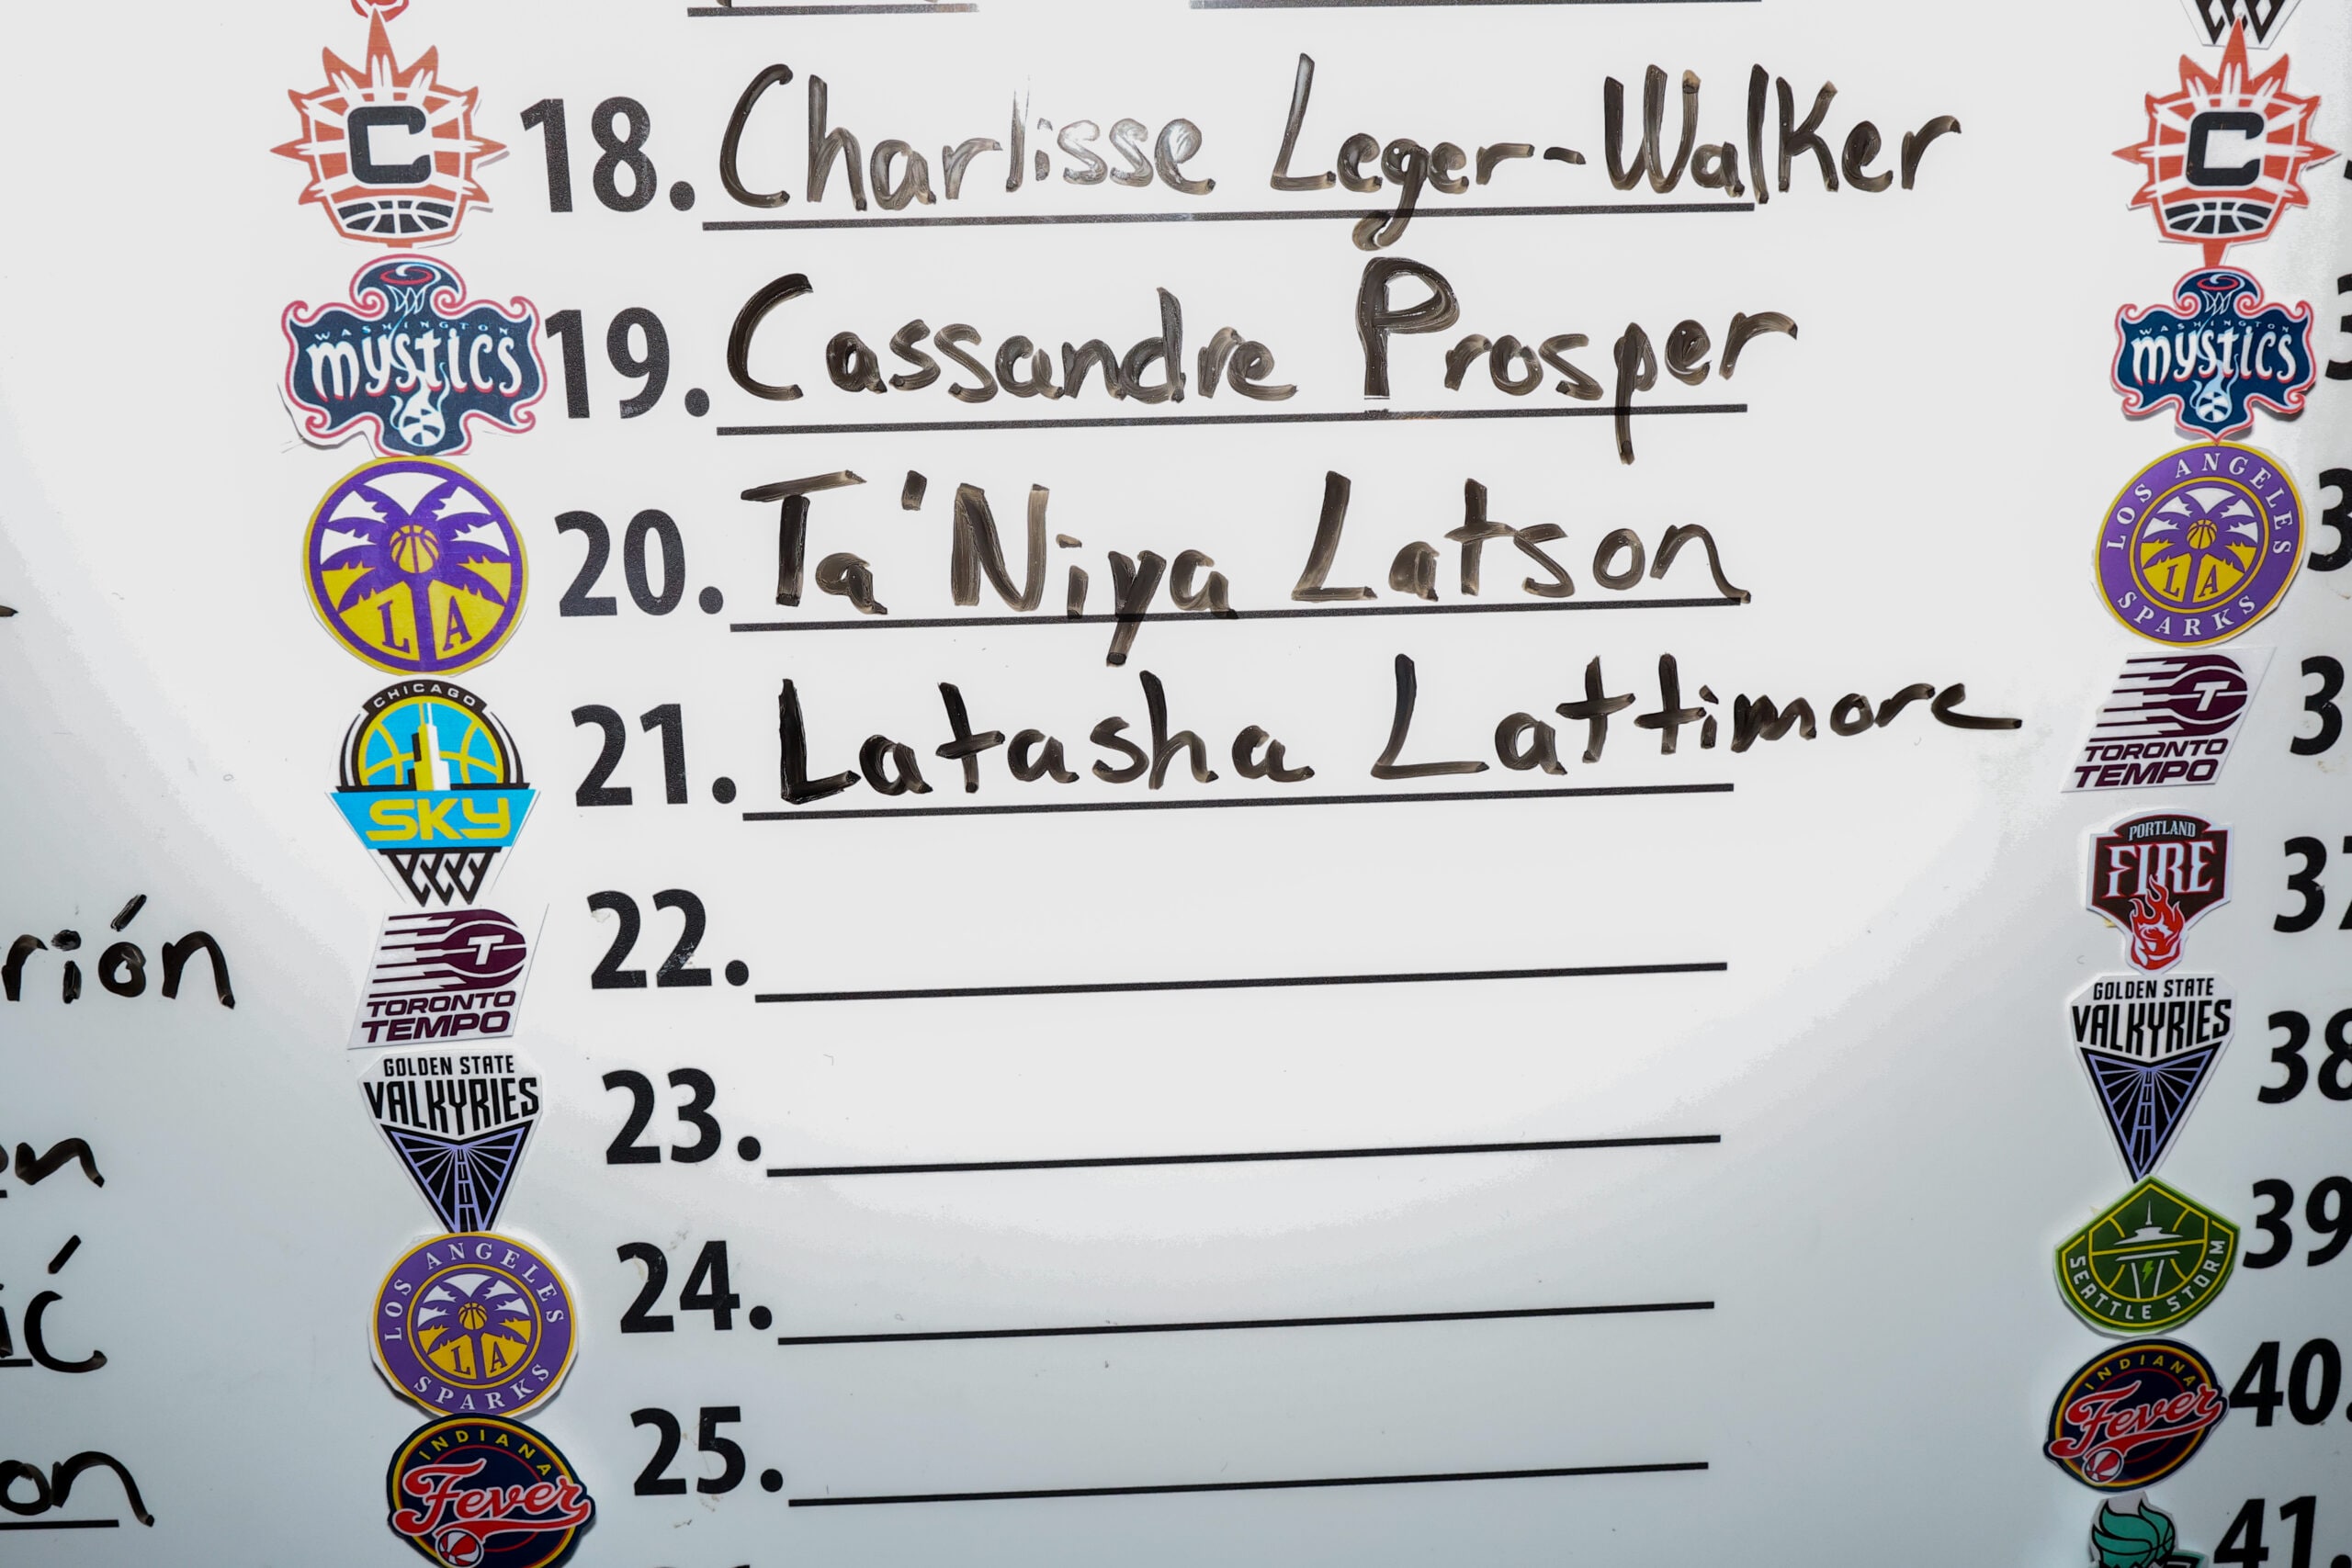 C 18. Charlisse Leger-Walker
WASHINGTON mystics 19. Cassandre Prosper
LA 20. Ta'Niya Latson
CHICAGO SKY 21. Latasha Lattimore
TORONTO TEMPO 22.
GOLDEN STATE VALKYRIES 23.
LOS ANGELES LA SPARKS 24.
INDIANA Fever 25.
rión
on
C
WASHINGTON mystics
LOS ANGELES LA SPARKS
TORONTO TEMPO
PORTLAND FIRE 37
GOLDEN STATE VALKYRIES 38
SEATTLE STORM 39
INDIANA Fever 40.
41.